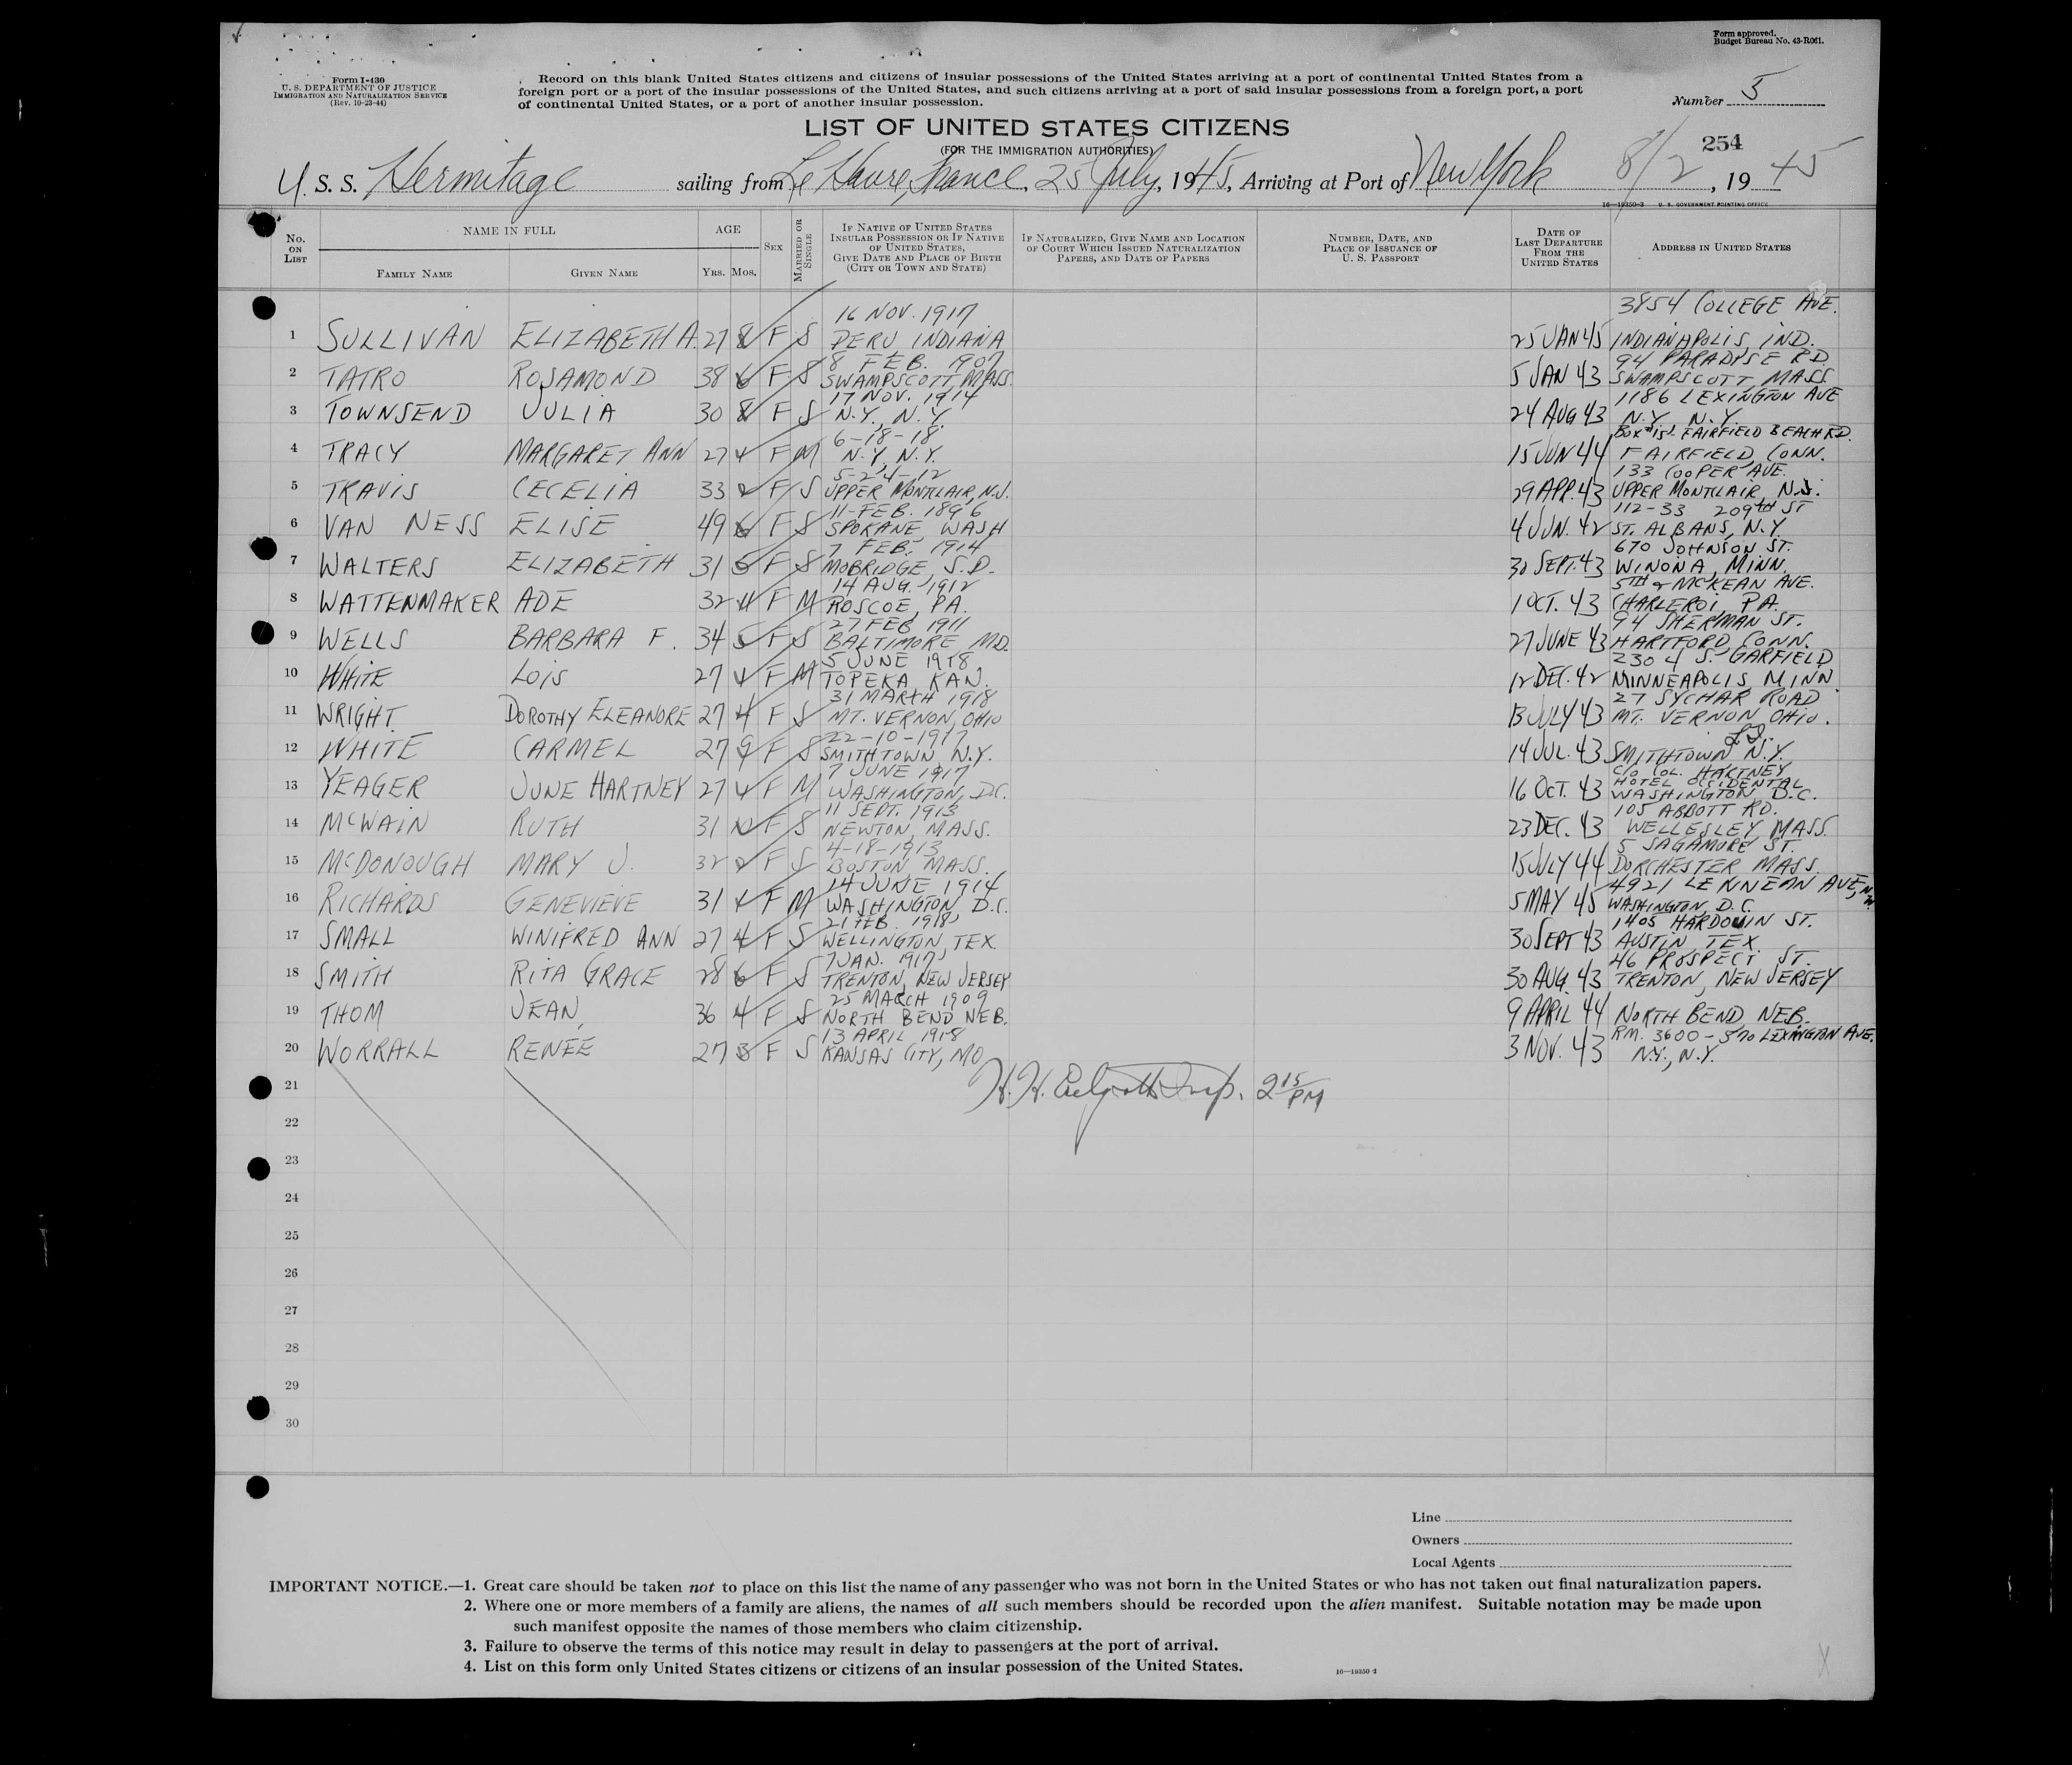 Form approved.
Budget Bureau No. 43-R061.
Form I-430
U. S. DEPARTMENT OF JUSTICE
IMMIGRATION AND NATURALIZATION SERVICE
(Rev. 10-23-44)
Record on this blank United States citizens and citizens of insular possessions of the United States arriving at a port of continental United States from a
foreign port or a port of the insular possessions of the United States, and such citizens arriving at a port of said insular possessions from a foreign port, a port
of continental United States, or a port of another insular possession.
Number 5
LIST OF UNITED STATES CITIZENS
(FOR THE IMMIGRATION AUTHORITIES)
254
U. S. S. Hermitage sailing from Le Havre, France, 25 July, 1945, Arriving at Port of New York 8/2, 1945
16—19350-3 U. S. GOVERNMENT PRINTING OFFICE
No. ON LIST
NAME IN FULL
FAMILY NAME
GIVEN NAME
AGE
Yrs. Mos.
SEX
MARRIED OR SINGLE
IF NATIVE OF UNITED STATES INSULAR POSSESSION OR IF NATIVE OF UNITED STATES, GIVE DATE AND PLACE OF BIRTH (CITY OR TOWN AND STATE)
IF NATURALIZED, GIVE NAME AND LOCATION OF COURT WHICH ISSUED NATURALIZATION PAPERS, AND DATE OF PAPERS
NUMBER, DATE, AND PLACE OF ISSUANCE OF U. S. PASSPORT
DATE OF LAST DEPARTURE FROM THE UNITED STATES
ADDRESS IN UNITED STATES
16 NOV. 1917 3854 COLLEGE AVE.
1 SULLIVAN ELIZABETH A. 27 8 F S PERU INDIANA 25 JAN 45 INDIANAPOLIS, IND.
8 FEB. 1907 94 PARADISE RD
2 TATRO ROSAMOND 38 6 F S SWAMPSCOTT, MASS. 5 JAN 43 SWAMPSCOTT, MASS.
17 NOV. 1914 1186 LEXINGTON AVE
3 TOWNSEND JULIA 30 8 F S N.Y., N.Y. 24 AUG 43 N.Y. N.Y.
6-18-18 FAIRFIELD BEACH RD.
4 TRACY MARGARET ANN 27 4 F M N.Y. N.Y. 15 JUN 44 FAIRFIELD, CONN.
5-24-12 133 COOPER AVE.
5 TRAVIS CECELIA 33 2 F S UPPER MONTCLAIR, N.J. 29 APR. 43 UPPER MONTCLAIR, N.J.
11-FEB. 1896 112-33 209TH ST
6 VAN NESS ELISE 49 6 F S SPOKANE, WASH 4 JUN. 42 ST. ALBANS, N.Y.
7 FEB. 1914 670 JOHNSON ST.
7 WALTERS ELIZABETH 31 5 F S MOBRIDGE, S.D. 30 SEPT. 43 WINONA, MINN.
14 AUG. 1912 5TH & MCKEAN AVE.
8 WATTENMAKER ADE 32 11 F M ROSCOE, PA. 1 OCT. 43 CHARLEROI, PA.
27 FEB 1911 94 SHERMAN ST.
9 WELLS BARBARA F. 34 5 F S BALTIMORE MD. 27 JUNE 43 HARTFORD, CONN.
5 JUNE 1918 2304 S. GARFIELD
10 WHITE LOIS 27 4 F M TOPEKA, KAN. 12 DEC. 42 MINNEAPOLIS, MINN
31 MARCH 1918 27 SYCHAR ROAD
11 WRIGHT DOROTHY ELEANORE 27 4 F S MT. VERNON, OHIO 13 JULY 43 MT. VERNON OHIO.
22-10-1917 L.I.
12 WHITE CARMEL 27 9 F S SMITHTOWN, N.Y. 14 JUL. 43 SMITHTOWN N.Y.
7 JUNE 1917 C/O COL. HARTNEY
HOTEL OCCIDENTAL
13 YEAGER JUNE HARTNEY 27 4 F M WASHINGTON, D.C. 16 OCT. 43 WASHINGTON D.C.
11 SEPT. 1913 105 ABBOTT RD.
14 MCWAIN RUTH 31 10 F S NEWTON, MASS. 23 DEC. 43 WELLESLEY, MASS.
4-18-1913 5 SAGAMORE ST.
15 MCDONOUGH MARY J. 32 2 F S BOSTON MASS. 15 JULY 44 DORCHESTER MASS.
14 JUNE 1914 4921 AVE, N.W.
16 RICHARDS GENEVIEVE 31 4 F M WASHINGTON D.C. 5 MAY 45 WASHINGTON, D.C.
21 FEB. 1918 1405 HARDOUIN ST.
17 SMALL WINIFRED ANN 27 4 F S WELLINGTON, TEX. 30 SEPT 43 AUSTIN, TEX.
7 JAN. 1917 46 PROSPECT ST.
18 SMITH RITA GRACE 28 6 F S TRENTON, NEW JERSEY 30 AUG. 43 TRENTON, NEW JERSEY
25 MARCH 1909
19 THOM JEAN 36 4 F S NORTH BEND NEB. 9 APRIL 44 NORTH BEND NEB.
13 APRIL 1918 RM. 3600 - 570 LEXINGTON AVE.
20 WORRALL RENÉE 27 3 F S KANSAS CITY, MO 3 NOV. 43 N.Y., N.Y.
21 H. H. Insp. 2 15 PM
22
23
24
25
26
27
28
29
30
Line
Owners
Local Agents
IMPORTANT NOTICE.—1. Great care should be taken not to place on this list the name of any passenger who was not born in the United States or who has not taken out final naturalization papers.
2. Where one or more members of a family are aliens, the names of all such members should be recorded upon the alien manifest. Suitable notation may be made upon
such manifest opposite the names of those members who claim citizenship.
3. Failure to observe the terms of this notice may result in delay to passengers at the port of arrival.
4. List on this form only United States citizens or citizens of an insular possession of the United States.
16—19350-3